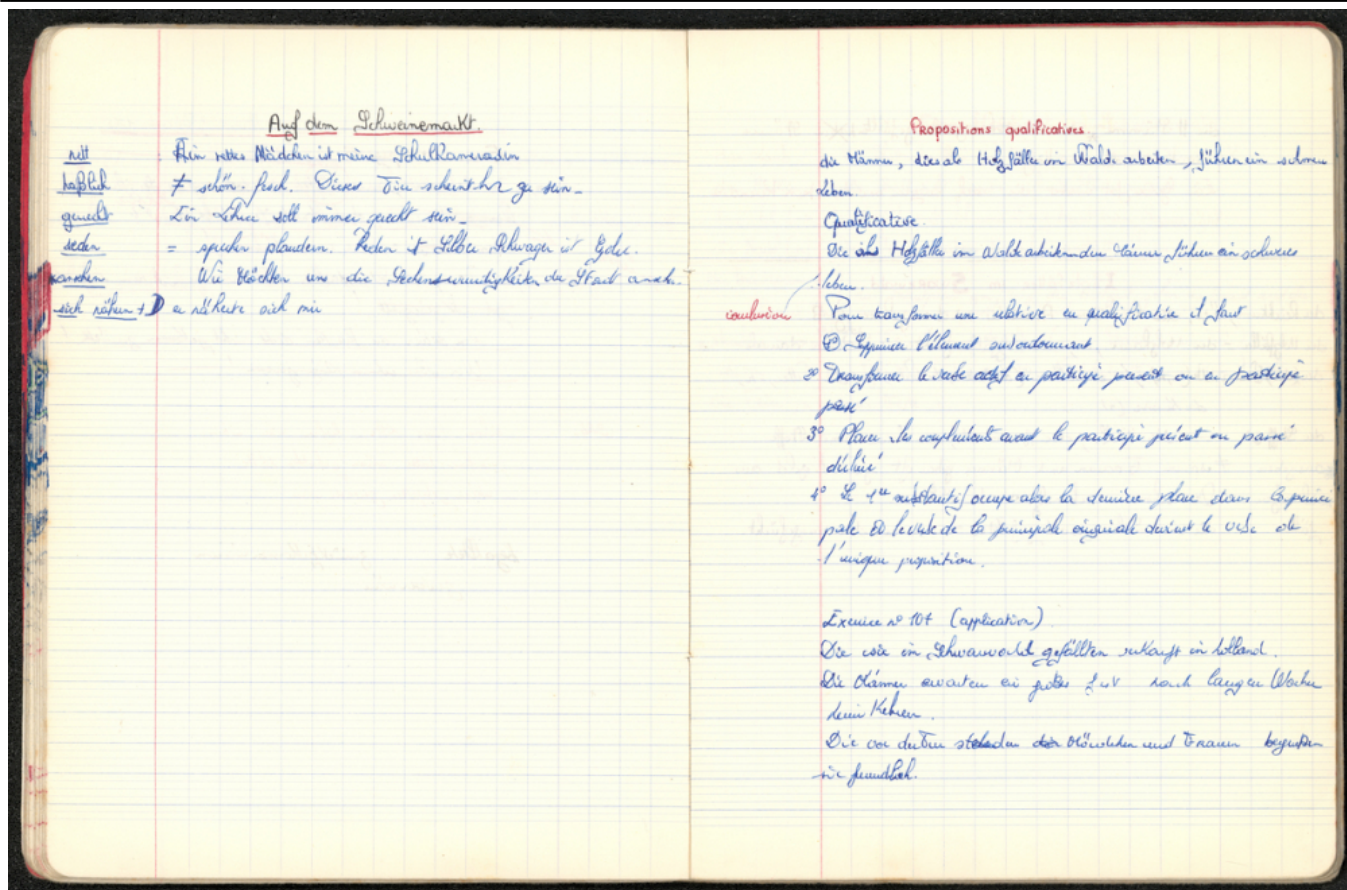 Auf dem Schweinemarkt.
nett : Ein nettes Mädchen ist meine Schulkameradin
haßlich ≠ schön. fesch. Dieses Tier scheint zu sein_
gerecht Ein Lehrer soll immer gerecht sein_
reden = sprechen plaudern. Reden ist Silber Schwagen ist Golde.
ansehen Wir Möchten uns die Sehenswurdigkeiten der Stadt ansehn.
sich nähern + D er näherte sich mir
Propositions qualificatives
die Männer, die als Holzfäller im Walde arbeiten, führen ein schweres
Leben.
Qualificative.
Die als Holzfäller im Walde arbeitenden Männer führen ein schweres
leben.
conclusion Pour transformer une relative en qualificative il faut
① Supprimer l'élément subordonnant.
2° Transformer le verbe actif en participe present ou en participe
passé
3° Placer les compléments avant le participe présent ou passé
décliné
4° Le 1er substantif occupe alors la dernière place dans la princi
pale et le verbe de la principale originale devient le verbe de
l'unique proposition.
Exercice n° 107 (application)
Die im Schwarzwald gefällten in Holland.
Die Männer erwarten ein nach langen Wochen
Kehren.
Die vor der Tur stehenden Mädchen und Frauen begrußen
sie freundlich.